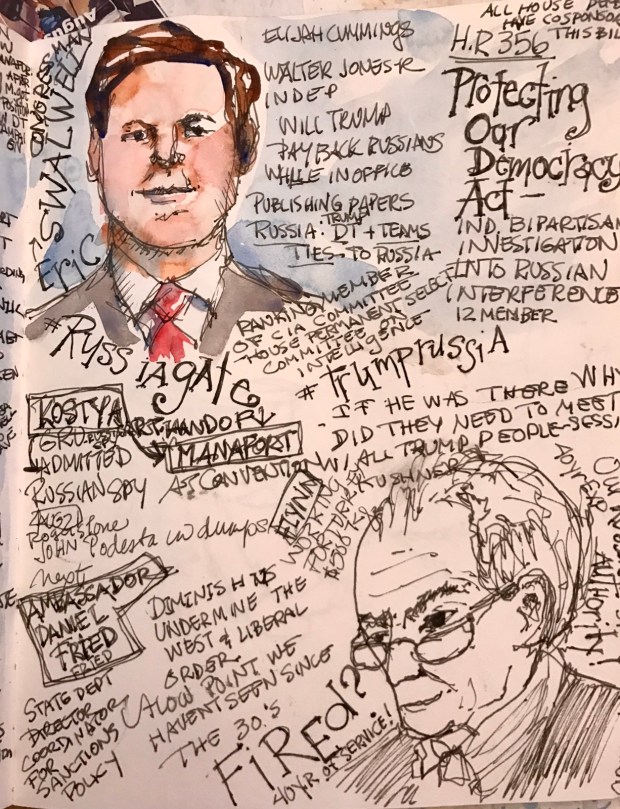 CONGRESS
ERIC → SWALWELL
ELIJAH CUMMINGS
WALTER JONES JR
INDEP
WILL TRUMP
PAY BACK RUSSIANS
WHILE IN OFFICE
PUBLISHING PAPERS
RUSSIA: TRUMP
DT + TEAMS
TIES TO RUSSIA
RANKING MEMBER
OF CIA COMMITTEE
HOUSE PERMANENT SELECT
COMMITTEE ON
INTELLIGENCE
ALL HOUSE
HAVE
THIS
H.R 356
Protecting
Our
Democracy
Act -
IND. BIPARTISAN
INVESTIGATION
INTO RUSSIAN
INTERFERENCE
12 MEMBER
#RUSSIAgate
#TrumpRUSSIA
- IF HE WAS THERE WHY
DID THEY NEED TO MEET
W/ ALL TRUMP PEOPLE-
KUSHNER
KOSTYA
GRU
ADMITTED
RUSSIAN SPY
HANDOF
MANAPORT
AT CONVENTION
FLYNN
WORKING
FOR
AUG 21
Roger Stone
JOHN Podesta
dumps
next
AMBASSADOR
DANIEL
FRIED
FRIED
STATE DEPT
DIRECTOR
COORDINATOR
FOR
SANCTIONS
POLICY
DIMINISH US
UNDERMINE THE
WEST & LIBERAL
ORDER
(A LOW POINT WE
HAVENT SEEN SINCE
THE 30'S
FIRED?
40 YR. OF SERVICE!
AUTHORITY!